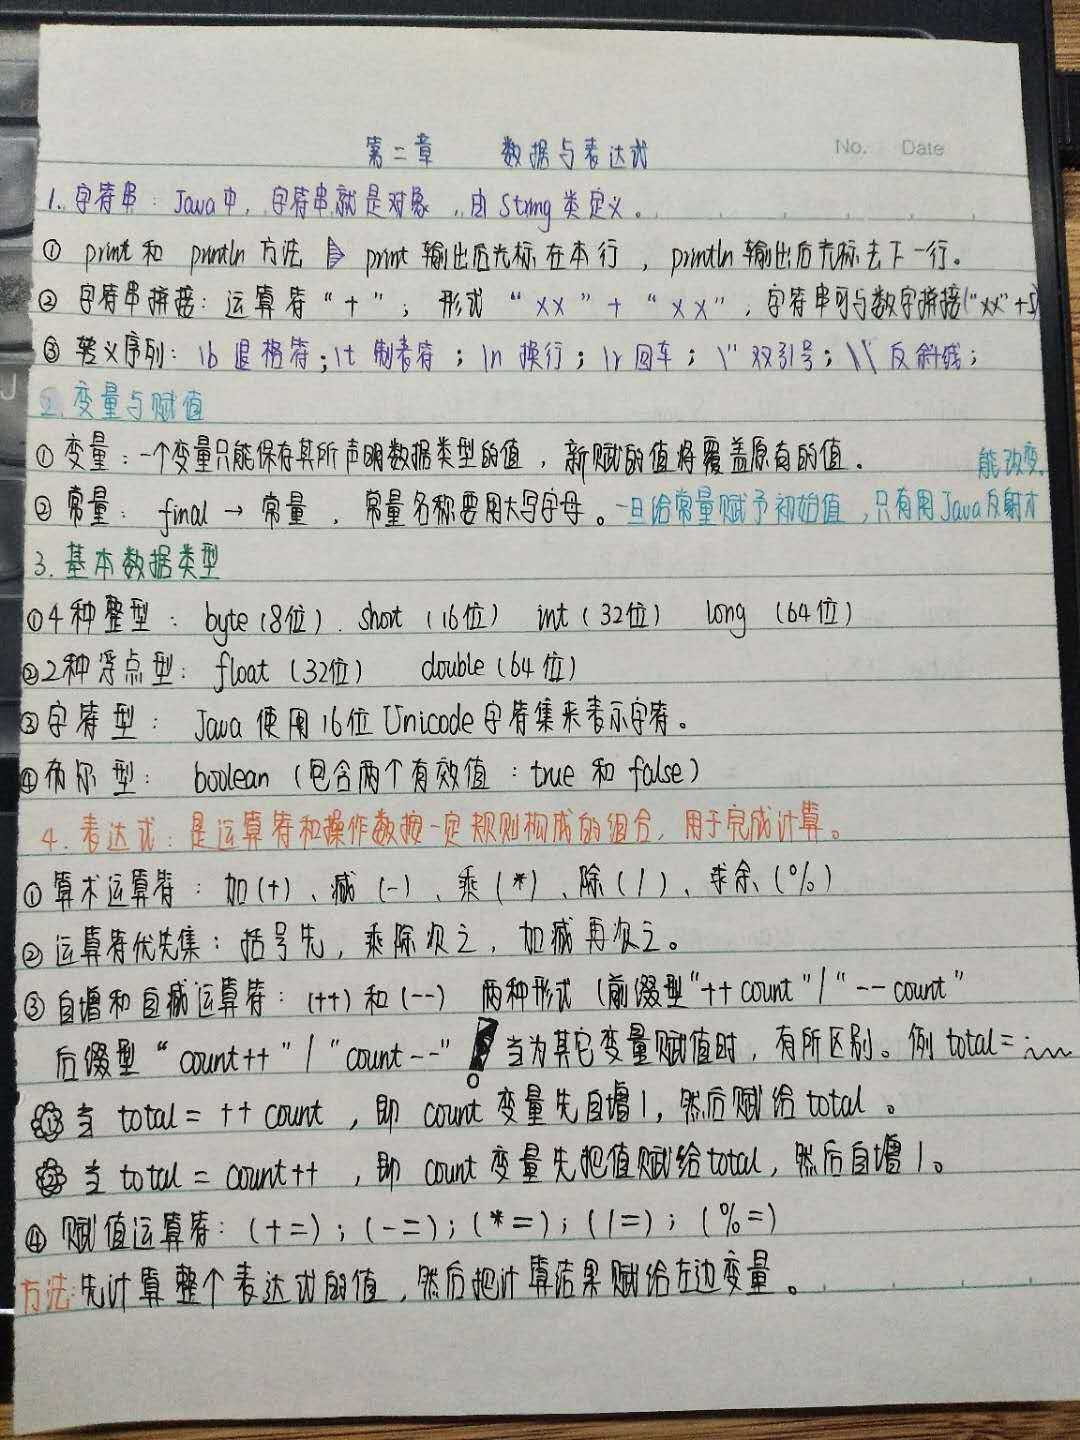 No. Date
第二章 数据与表达式
1. 字符串：Java中，字符串就是对象，由String类定义。
① print 和 println 方法 ▷ print 输出后光标在本行，println 输出后光标去下一行。
② 字符串拼接：运算符“+”；形式“xx”+“xx”，字符串可与数字拼接("xx"+5)
③ 转义序列：\b 退格符；\t 制表符；\n 换行；\r 回车；\" 双引号；\\ 反斜线；
2. 变量与赋值
① 变量：一个变量只能保存其所声明数据类型的值，新赋的值将覆盖原有的值。
② 常量：final → 常量，常量名称要用大写字母。一旦给常量赋予初始值，只有用Java反射才能改变。
3. 基本数据类型
① 4种整型：byte(8位) short(16位) int(32位) long(64位)
② 2种浮点型：float(32位) double(64位)
③ 字符型：Java使用16位Unicode字符集来表示字符。
④ 布尔型：boolean(包含两个有效值：true 和 false)
4. 表达式：是运算符和操作数按一定规则构成的组合，用于完成计算。
① 算术运算符：加(+)、减(-)、乘(*)、除(/)、求余(%)
② 运算符优先集：括号先，乘除次之，加减再次之。
③ 自增和自减运算符：(++)和(--) 两种形式(前缀型"++count"/"--count"
后缀型“count++”/"count--" ! 当为其它变量赋值时，有所区别。例 total=
① 当 total = ++count，即 count 变量先自增1，然后赋给total。
② 当 total = count++，即 count 变量先把值赋给total，然后自增1。
④ 赋值运算符：(+=)；(-=)；(*=)；(/=)；(%=)
方法：先计算整个表达式的值，然后把计算结果赋给左边变量。